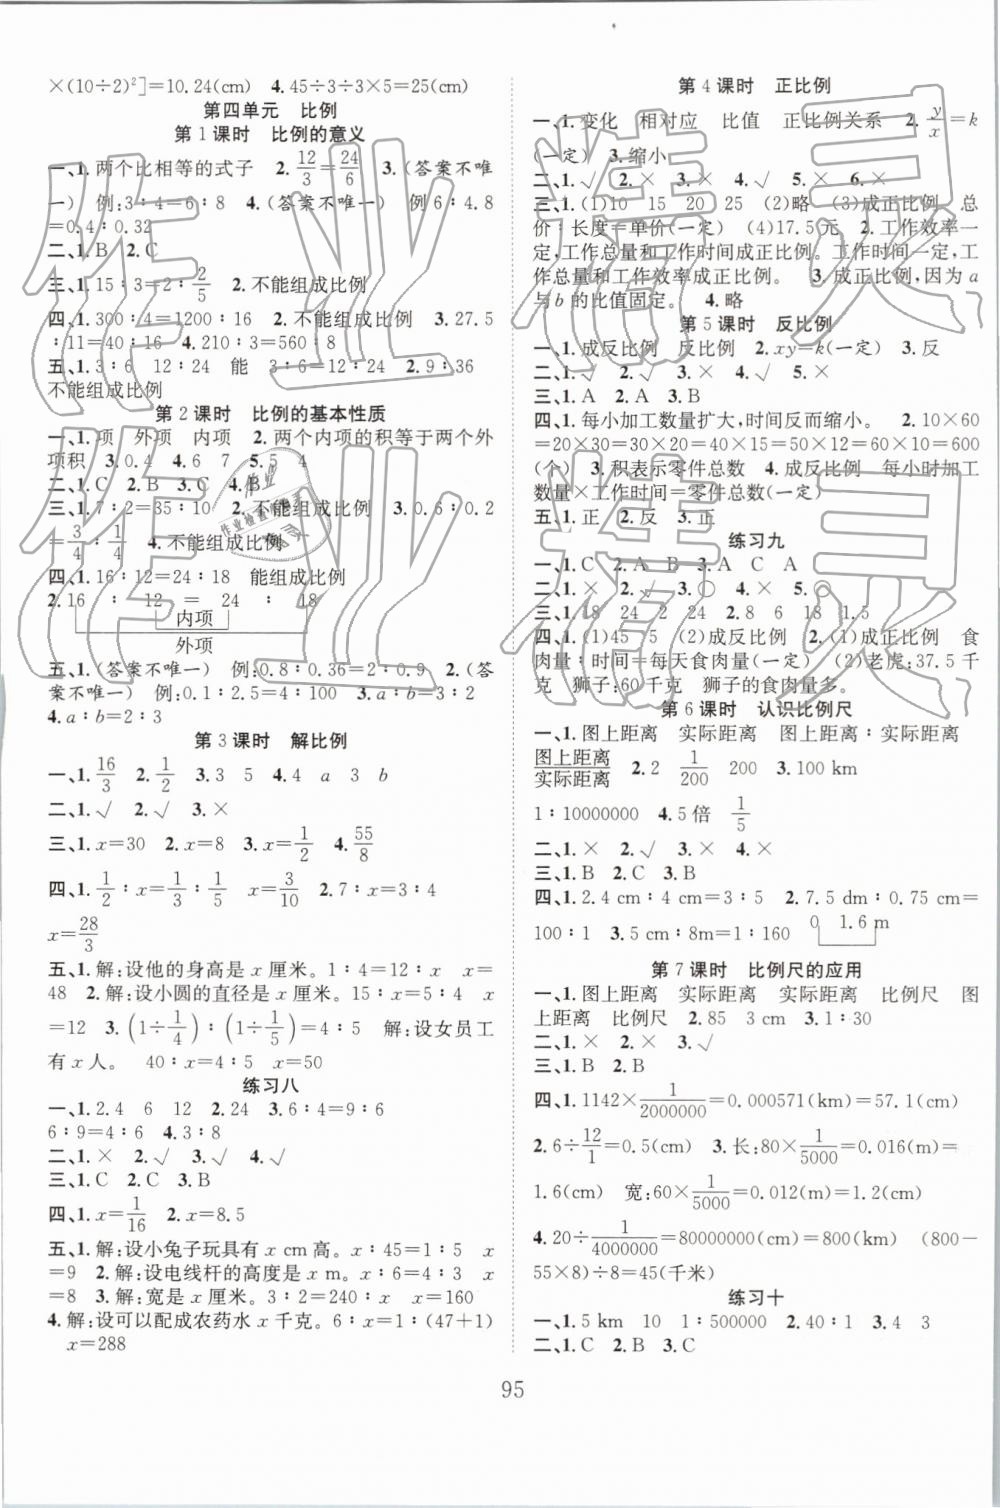 ×(10÷2)²]=10.24(cm)  4.45÷3÷3×5=25(cm)
第四单元 比例
第1课时 比例的意义
一、1.两个比相等的式子 2.12/3=24/6 3.(答案不唯
一) 例:3∶4=6∶8 4.(答案不唯一) 例6∶4.8
=0.4∶0.32
二、1.B 2.C
三、1.15∶3=2∶2/5 2.不能组成比例
四、1.300∶4=1200∶16 2.不能组成比例 3.27.5
∶11=40∶16 4.210∶3=560∶8
五、1.3∶6 12∶24 能 3∶6=12∶24 2.9∶36
不能组成比例
第2课时 比例的基本性质
一、1.项 外项 内项 2.两个内项的积等于两个外
项积 3.0.4 4.6 7 5.5 4
二、1.C 2.A 3.C 4.B
三、1.7∶2=35∶10 2.不能组成比例 3.0.6∶0.2
=3/4∶1/4 4.不能组成比例
四、1.16∶12=24∶18 能组成比例
2.16 ∶ 12 = 24 ∶ 18
内项
外项
五、1.(答案不唯一) 例:0.8∶0.36=2∶0.9 2.(答
案不唯一) 例:0.1∶2.5=4∶100 3.a∶b=3∶2
4.a∶b=2∶3
第3课时 解比例
一、1.16/3 2.1/2 3.3 5 4.4 a 3 b
二、1.√ 2.√ 3.×
三、1.x=30 2.x=8 3.x=1/2 4.55/8
四、1.1/2∶x=1/3∶1/5 x=3/10 2.7∶x=3∶4
x=28/3
五、1.解:设他的身高是x厘米。1∶4=12∶x x=
48 2.解:设小圆的直径是x厘米。15∶x=5∶4 x
=12 3.(1÷1/4)∶(1÷1/5)=4∶5 解:设女员工
有x人。 40∶x=4∶5 x=50
练习八
一、1.2.4 6 12 2.24 3.6∶4=9∶6
6∶9=4∶6 4.3∶8
二、1.× 2.√ 3.√ 4.√
三、1.C 2.C 3.B
四、1.x=1/16 2.x=8.5
五、1.解:设小兔子玩具有x cm高。x∶45=1∶5 x
=9 2.解:设电线杆的高度是x m。x∶6=4∶3 x
=8 3.解:宽是x厘米。3∶2=240∶x x=160
4.解:设可以配成农药水x千克。6∶x=1∶(47+1)
x=288
第4课时 正比例
一、1.变化 相对应 比值 正比例关系 2.y/x=k
(一定) 3.缩小
二、1.√ 2.× 3.× 4.√ 5.× 6.×
三、1.(1)10 15 20 25 (2)略 (3)成正比例 总
价∶长度=单价(一定) (4)17.5元 2.工作效率一
定,工作总量和工作时间成正比例。工作时间一定,工
作总量和工作效率成正比例。 3.成正比例,因为a
与b的比值固定。 4.略
第5课时 反比例
一、1.成反比例 反比例 2.xy=k(一定) 3.反
二、1.√ 2.√ 3.× 4.× 5.×
三、1.A 2.A 3.B
四、1.每小加工数量扩大,时间反而缩小。 2.10×60
=20×30=30×20=40×15=50×12=60×10=600
(个) 3.积表示零件总数 4.成反比例 每小时加工
数量×工作时间=零件总数(一定)
五、1.正 2.反 3.正
练习九
一、1.C 2.A B 3.A 4.B 5.A
二、1.× 2.× 3.√ 4.× 5.
三、1.18 24 2 24 2.8 6 18 1.5
四、1.(1)45 5 (2)成反比例 2.(1)成正比例 食
肉量∶时间=每天食肉量(一定) (2)老虎:37.5千
克 狮子:60千克 狮子的食肉量多。
第6课时 认识比例尺
一、1.图上距离 实际距离 图上距离∶实际距离
图上距离/实际距离 2.2 1/200 200 3.100 km
1∶10000000 4.5倍 1/5
二、1.× 2.√ 3.× 4.×
三、1.B 2.C 3.B
四、1.2.4 cm∶4 cm=3∶5 2.7.5 dm∶0.75 cm=
100∶1 3.5 cm∶8m=1∶160 0 1.6 m
第7课时 比例尺的应用
一、1.图上距离 实际距离 实际距离 比例尺 图
上距离 比例尺 2.85 3 cm 3.1∶30
二、1.× 2.× 3.√
三、1.B 2.B
四、1.1142×1/2000000=0.000571(km)=57.1(cm)
2.6÷12/1=0.5(cm) 3.长:80×1/5000=0.016(m)=
1.6(cm) 宽:60×1/5000=0.012(m)=1.2(cm)
4.20÷1/4000000=80000000(cm)=800(km) (800-
55×8)÷8=45(千米)
练习十
一、1.5 km 10 1∶500000 2.40∶1 3.4 3
二、1.C 2.B 3.C 4.C
95
作业精灵
作业精灵